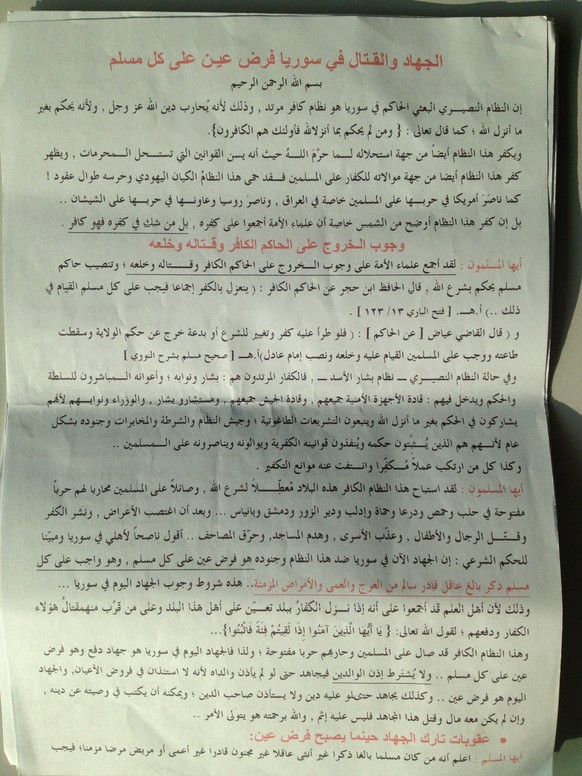 الجهاد والقتال في سوريا فرض عين على كل مسلم
بسم الله الرحمن الرحيم
إن النظام النصيـــري البعثي الحاكم في سوريا هو نظام كافر مرتد , وذلك لأنه يُحارب دين الله عز وجل , ولأنه يحكم بغير
ما أنزل الله ؛ كما قال تعالى : { ومن لم يحكم بما أنزلالله فأولئك هم الكافرون}.
ويكفر هذا النظام أيضاً من جهة استحلاله لـــما حرَّمَ اللــه حيث أنه يسن القوانين التي تستـــحل الـــمحرمات , ويظهر
كفر هذا النظام أيضا من جهة موالاته للكفار على المسلمين فـــقد حمى هذا النظامُ الكيان اليهودي وحرسه طوال عقود !
كما ناصَرَ أمريكا في حربـــها على المسلمين خاصة في العراق , وناصَرَ روسيا وعاونـــها في حربـــها على الشيشان ..
بل إن كفر هذا النظام أوضح من الشمس خاصة أن علماء الأمة أجمعوا على كفره , بل من شك في كفره فهو كافر .
وجوب الـخروج على الحاكم الكافر وقتاله وخلعه
أيها الـمسلمون : لقد أجمع علماء الأمة على وجوب الـــخروج على الحاكم الكافر وقـــتاله وخلعه ؛ وتنصيب حاكم
مسلم يحكم بشرع الله , قال الحافظ ابن حجر عن الحاكم الكافر : ( ينعزل بالكفر إجماعا فيجب على كل مسلم القيام في
ذلك ..) أ.هـــ. [ فتح الباري ١٣/ ١٢٣ ] .
و ( قال القاضي عياض [ عن الحاكم ] : ( فلو طرأ عليه كفر وتغيير للشرع أو بدعة خرج عن حكم الولاية وسقطت
طاعته ووجب على المسلمين القيام عليه وخلعه ونصب إمام عادل)أ.هـــ [ صحيح مسلم بشرح النووي ]
وفي حالة النظام النصيـــري ـــ نظام بشار الأسد ـــ , فالكفار المرتدون هم : بشار ونوابه ؛ وأعوانه الـــمباشرون للسلطة
والحكم ويدخل فيهم : قادة الأجهزة الأمنية جميعهم , وقادة الجيش جميعهم , ومستشارو بشار , والوزراء ونوابـــهم لأنهم
يشاركون في الحكم بغير ما أنزل الله ويتبعون التشريعات الطاغوتية ؛ وجيش النظام والشرطة والمخابرات وجنوده بشكل
عام لأنـــهم هم الذين يُـــثبِّتون حكمه ويُنفذون قوانينه الكفرية ويوالونه ويناصرونه على الـــمسلمين ..
وكذا كل من ارتكب عملاً مُـــكفِّرا وانتفت عنه موانع التكفير .
أيها المسلمون : لقد استباح هذا النظام الكافر هذه البلاد مُعطِّـــلاً لشرع الله , وصائلاً على المسلمين محاربا لهم حرباً
مفتوحة في حلب وحمص ودرعا وحماة وإدلب ودير الزور ودمشق وبانياس ... وبعد أن اغتصب الأعراض , ونشر الكفر
وقتـــل الرجال والأطفال , وعذّب الأسرى , وهدم المساجد, وحرّق المصاحف .. أقول ناصحاً لأهلي في سوريا ومبيّنا
للحكم الشرعي : إن الجهاد الآن في سوريا ضد هذا النظام وجنوده هو فرض عين على كل مسلم , وهو واجب على كل
مسلم ذكر بالغ عاقل قادر سالم من العرج والعمى والأمراض المزمنة.. هذه شروط وجوب الجهاد اليوم في سوريا ...
وذلك لأن أهل العلم قد أجمعوا على أنه إذا نـــزل الكفارُ ببلد تعـــيّن على أهل هذا البلد وعلى من قرُب منهمقتالُ هؤلاء
الكفار ودفعهم ؛ لقول الله تعالى: { يَا أَيُّهَا الَّذِينَ آمَنُوا إِذَا لَقِيتُمْ فِئَةً فَاثْبُتُوا}...
وهذا النظام الكافر قد صال على المسلمين وحاربهم حربا مفتوحة ؛ ولذا فالجهاد اليوم في سوريا هو جهاد دفع وهو فرض
عين على كل مسلم .. ولا يُشترط إذن الوالدين فيجاهد حتى لو لم يأذن والداه لأنه لا استئذان في فروض الأعيان, والجهاد
اليوم هو فرض عين .. وكذلك يجاهد حتىلو عليه دين ولا يستأذن صاحب الدين ؛ ويمكنه أن يكتب في وصيته عن دينه ,
وإن لم يكن معه مال وقتل هذا المجاهد فليس عليه إثم , والله برحمته هو يتولى الأمر ..
• عقوبات تارك الجهاد حينما يصبح فرض عين:
أيها المسلم : اعلم أنه من كان مسلما بالغا ذكرا غير أنثى عاقلا غير مجنون قادرا غير أعمى أو مريض مرضا مزمنا؛ فيجب